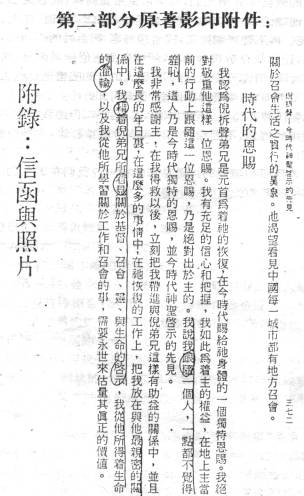 第二部分原著影印附件：
倪柝聲—今時代神聖啓示的先見
三七二
關於召會生活之實行的異象。他渴望看見中國每一城市都有地方召會。
時代的恩賜
我認爲倪柝聲弟兄是元首爲着祂的恢復，在今時代賜給祂身體的一個獨特恩賜。我絕
對敬重他這樣一位恩賜。我有充足的信心和把握，我如此爲着主的權益，在地上主當
前的行動上跟隨這一位恩賜，乃是絕對出於主的。我說我跟隨一個人，一點都不覺得
羞恥，這人乃是今時代獨特的恩賜，並今時代神聖啓示的先見。
我非常感謝主，在我得救以後，立刻把我帶進與倪弟兄這樣有助益的關係中，並且
在這麼長的年日裏，在這麼多的事情中，在祂恢復的工作上，把我放在與他最親密的關
係中。我藉着倪弟兄所得關於基督、召會、靈、與生命的啓示，我從他所得着生命
的灌輸，以及我從他所學習關於工作和召會的事，需要永世來估量其眞正的價值。
附錄：信函與照片